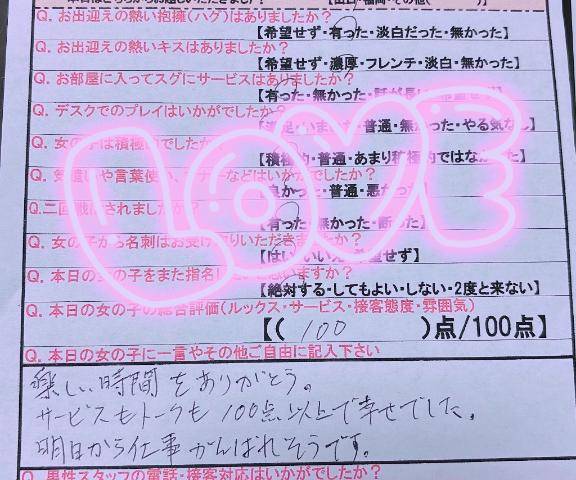 Q. お出迎えの熱い抱擁(ハグ)はありましたか?
【希望せず・有った・淡白だった・無かった】
Q. お出迎えの熱いキスはありましたか?
【希望せず・濃厚・フレンチ・淡白・無かった】
Q. お部屋に入ってスグにサービスはありましたか?
【有った・無かった・
Q. デスクでのプレイはいかがでしたか?
普通・無かった・やる気なし】
Q. 女の子は積極的でしたか?
【積極的・普通・あまり積極的ではなかった】
Q. 気遣いや言葉使い、マナーなどはいかがでしたか?
【良かった・普通・悪かった】
Q.二回戦はされましたか?
【有った・無かった・断った】
Q. 女の子から名刺はお受け取りいただきましたか?
【はい・いいえ・希望せず】
Q. 本日の女の子をまた指名したいと思いますか?
【絶対する・してもよい・しない・2度と来ない】
Q. 本日の女の子の総合評価(ルックス・サービス・接客態度・雰囲気)
【( 100 )点/100点】
Q. 本日の女の子に一言やその他ご自由に記入下さい
楽しい時間をありがとう。
サービスもトークも100点以上で幸せでした。
明日から仕事がんばれそうです。
Q. 男性スタッフの電話・接客対応はいかがでしたか?
LOVE